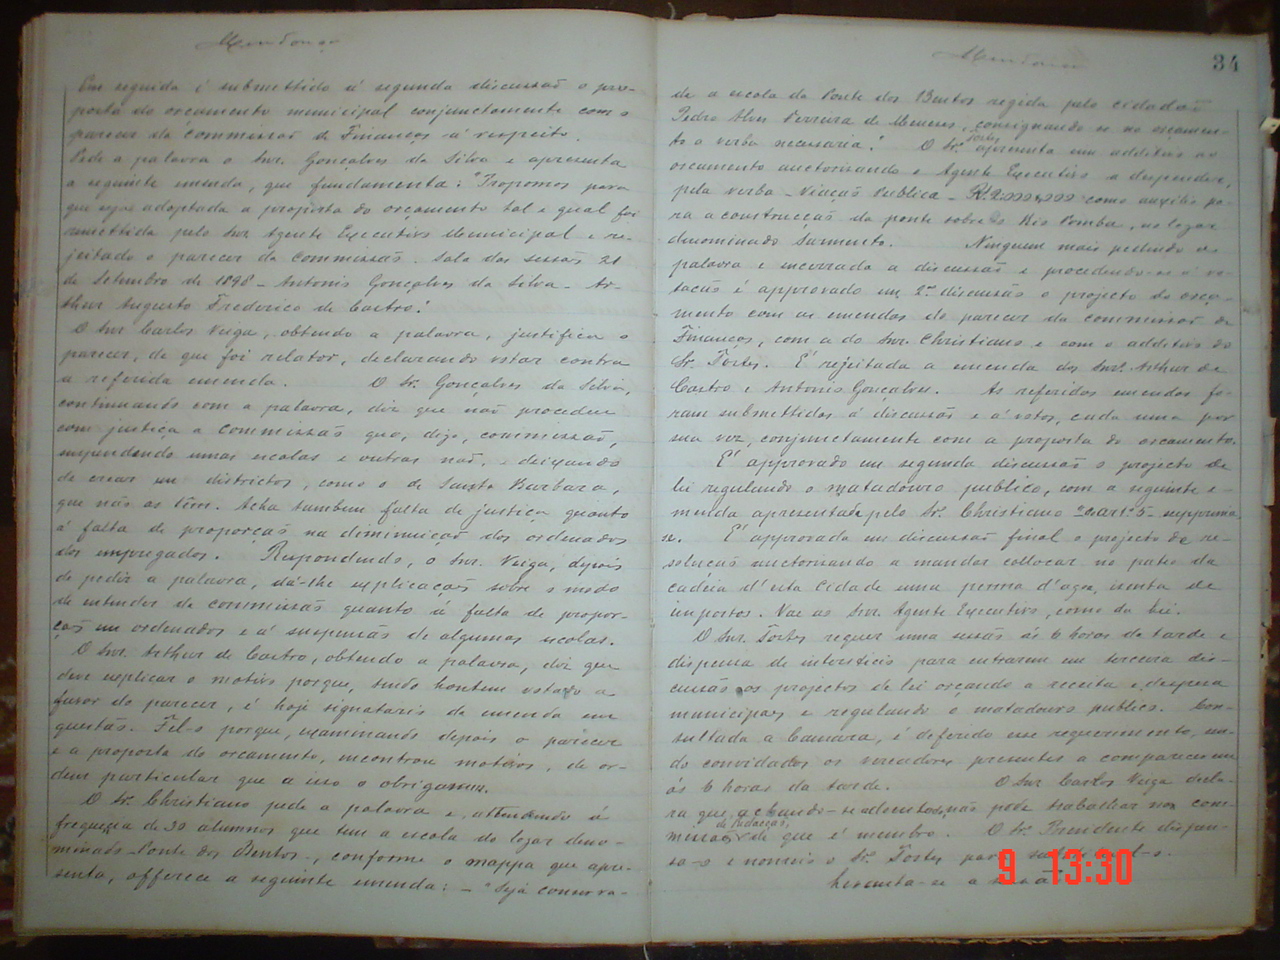 Mendonça
Em seguida é submettida á segunda discussão o pro-
posta do orçamento municipal conjunctamente com o
parecer da commissão de Finanças á respeito.
Pede a palavra o Snr. Gonçalves da Silva e apresenta
a seguinte emenda, que fundamenta: "Propomos para
que seja adoptada a proposta do orçamento tal e qual foi
remettida pelo Snr. Agente Executivo Municipal e re-
jeitado o parecer da commissão. Sala das sessões 21
de Setembro de 1898 - Antonio Gonçalves da Silva - Ar-
thur Augusto Frederico de Castro."
O Snr Carlos Veiga, obtendo a palavra, justifica o
parecer, de que foi relator, declarando votar contra
a referida emenda. O Sr. Gonçalves da Silva,
continuando com a palavra, diz que não procedeu
com justiça a commissão que, digo, commissão,
suspendendo umas escolas e outras não, e deixando
de crear em districtos, como o de Santa Barbara,
que não as têm. Acha tambem falta de justiça quanto
á falta de proporção na diminuição dos ordenados
dos empregados. Respondendo, o Snr. Veiga, depois
de pedir a palavra, dá-lhe explicações sobre o modo
de entender da commissão quanto á falta de propor-
ção em ordenados e á suspensão de algumas escolas.
O Snr. Arthur de Castro, obtendo a palavra, diz que
deve explicar o motivo porque, tendo hontem votado a
favor do parecer, é hoje signatario da emenda em
questão. Fel-o porque, examinando depois o parecer
e a proposta do orçamento, encontrou motivos, de or-
dem particular que a isso o obrigassem.
O Sr. Christiano pede a palavra e attendendo á
frequezia de 30 alumnos que tem a escola do logar deno-
minado - Ponte dos Bentos -, conforme o mappa que apre-
senta, offerece a seguinte emenda: - "Seja conserva-
Mendonça
34
de a escola da Ponte dos Bentos regida pelo cidadão
Pedro Alves Ferreira de Menezes, consignando se no orçamen-
to a verba necessaria." O Sr. Fortes apresenta um additivo ao
orçamento auctorisando o Agente Executivo a despender,
pela verba - Viação Publica - como auxilio pa-
ra a construcção da ponte sobre o Rio Pomba, no logar
denominado Sarmento. Ninguem mais pedindo a
palavra e encerrada a discussão e procedendo-se á vo-
tação é approvado em 2ª discussão o projecto do orça-
mento com as emendas do parecer da commissão de
Finanças, com a do Snr. Christiano e com o additivo do
Sr. Fortes. É rejeitada a emenda dos Snrs. Arthur de
Castro e Antonio Gonçalves. As referidas emendas fo-
ram submettidas á discussão e á votos, cada uma por
sua vez, conjunctamente com a proposta do orçamento.
É approvado em segunda discussão o projecto de
lei regulando o matadouro publico, com a seguinte e-
menda apresentada pelo Sr. Christiano "o art. 5- supprima
se. É approvada em discussão final o projecto de re-
solução auctorisando a mandar collocar no pateo da
cadeia d'esta Cidade uma penna d'agoa, isenta de
impostos. Vae ao Snr. Agente Executivo, como da lei.
O Snr. Fortes requer uma sessão ás 6 horas da tarde e
dispensa de intersticio para entrarem em terceira dis-
cussão os projectos de lei orçando a receita e despeza
municipaes e regulando o matadouro publico. Con-
sultada a Camara, é deferido esse requerimento, sen-
do convidados os vereadores presentes a comparecerem
ás 6 horas da tarde. O Snr Carlos Veiga decla-
ra que, achando-se adoentado, não póde trabalhar na com-
missão de redacção, de que é membro. O Sr. Presidente dispen-
sa-o e nomeia o Sr. Fortes para
Levanta-se a sessão
9 13:30